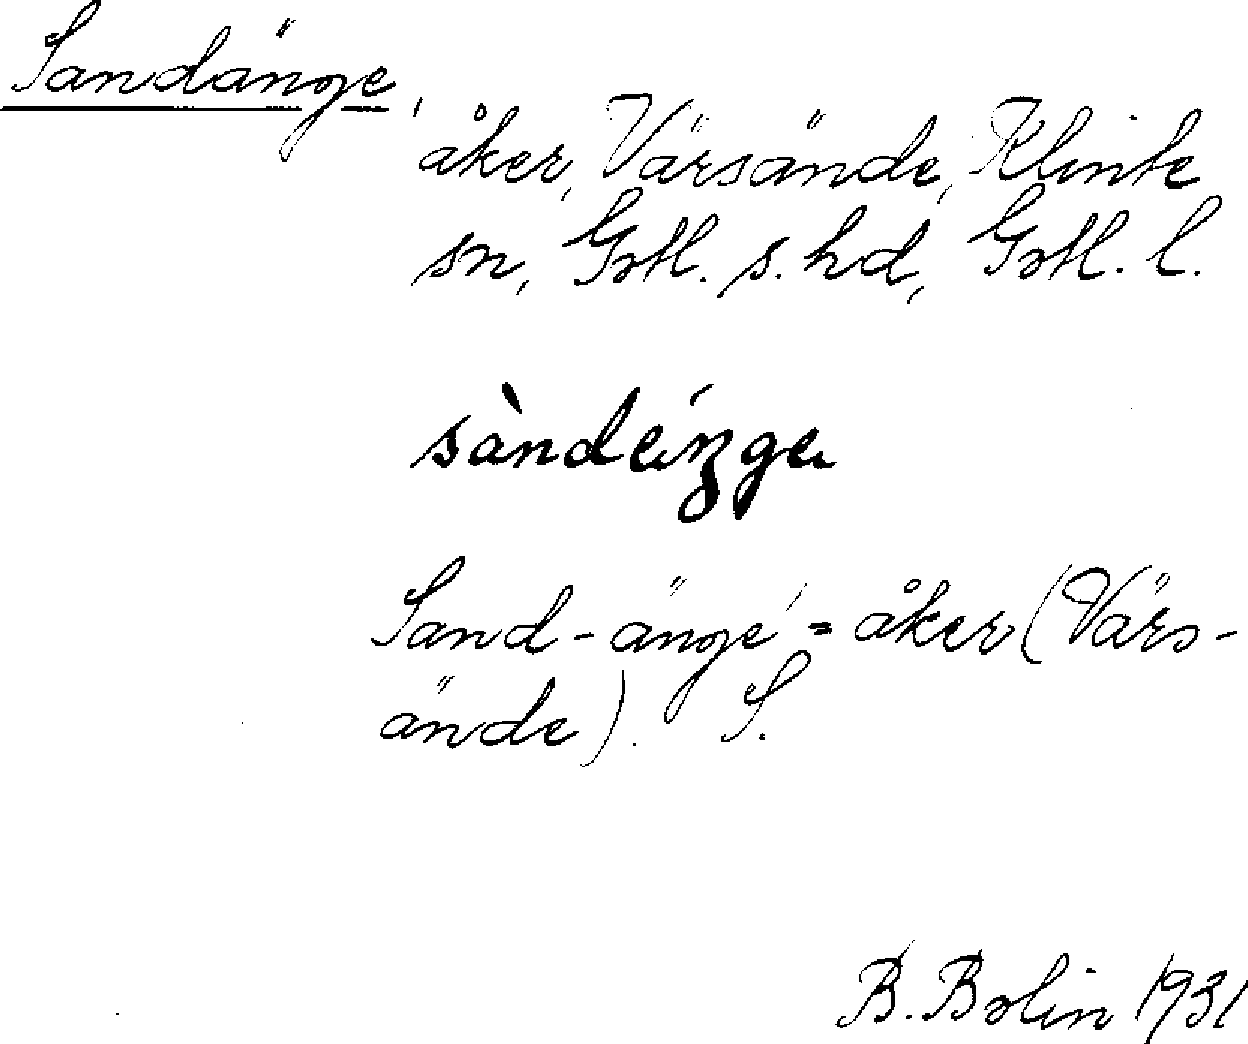 Sandänge,
åker, Värsände, Klinte
sn, Gotl. s. hd, Gotl. l.
sàndeíŋge
Sand-änge' = åker (Värs-
ände). S.
B. Bolin 1931